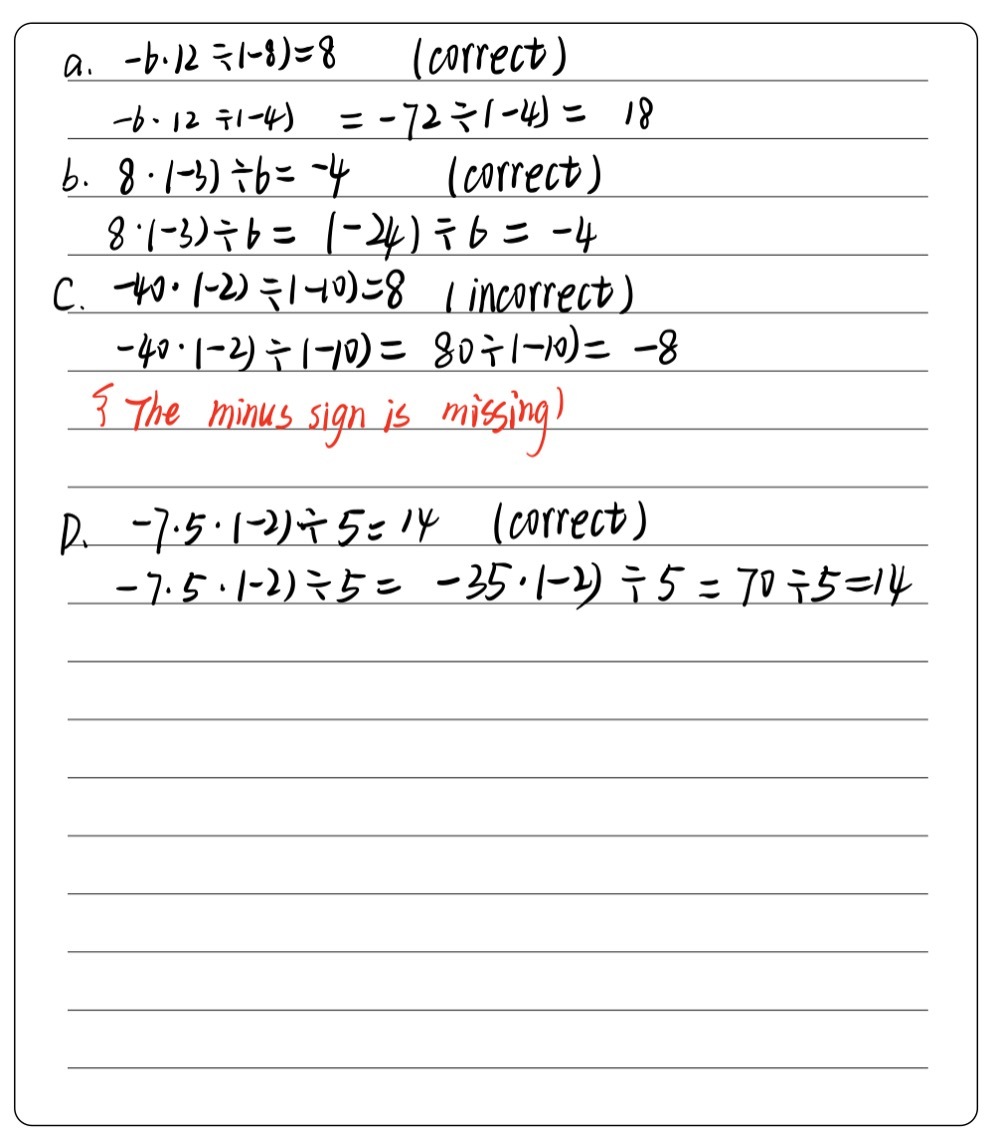 a. -6·12÷(-8)=8 (correct)
-6·12÷(-4) = -72÷(-4) = 18
b. 8·(-3)÷6= -4 (correct)
8·(-3)÷6= (-24)÷6= -4
C. -40·(-2)÷(-10)=8 (incorrect)
-40·(-2)÷(-10)= 80÷(-10)= -8
{ The minus sign is missing)
D. -7·5·(-2)÷5=14 (correct)
-7·5·(-2)÷5= -35·(-2)÷5=70÷5=14